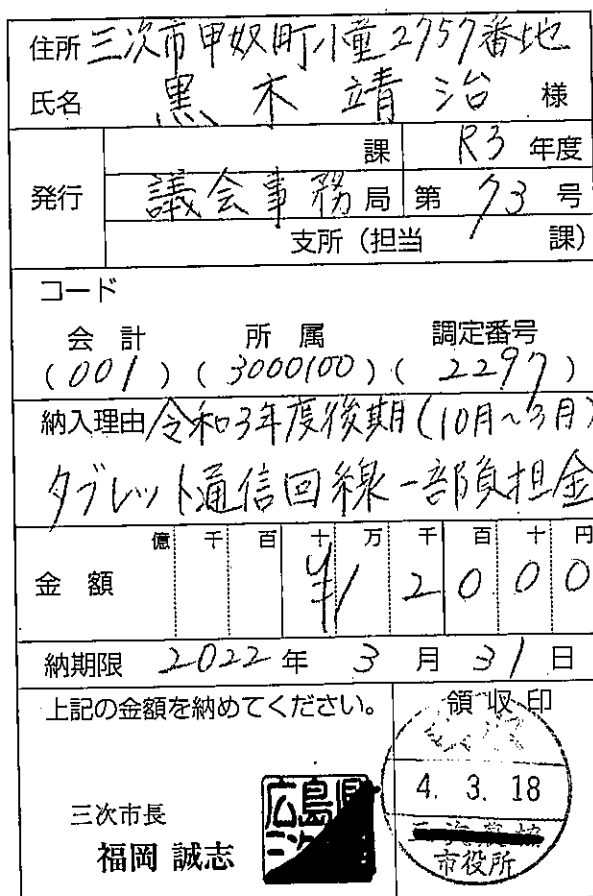 住所 三次市甲奴町小童2757番地
氏名 黒木靖治 様
発行
課 R3年度
議会事務局 第73号
支所（担当 課）
コード
会計 所属 調定番号
(001) (3000100) (2297)
納入理由 令和3年度後期(10月～3月)
タブレット通信回線一部負担金
億 千 百 十 万 千 百 十 円
金額 ¥12000
納期限 2022年3月31日
上記の金額を納めてください。
領収印
4. 3. 18
市役所
三次市長
福岡 誠志
広島県